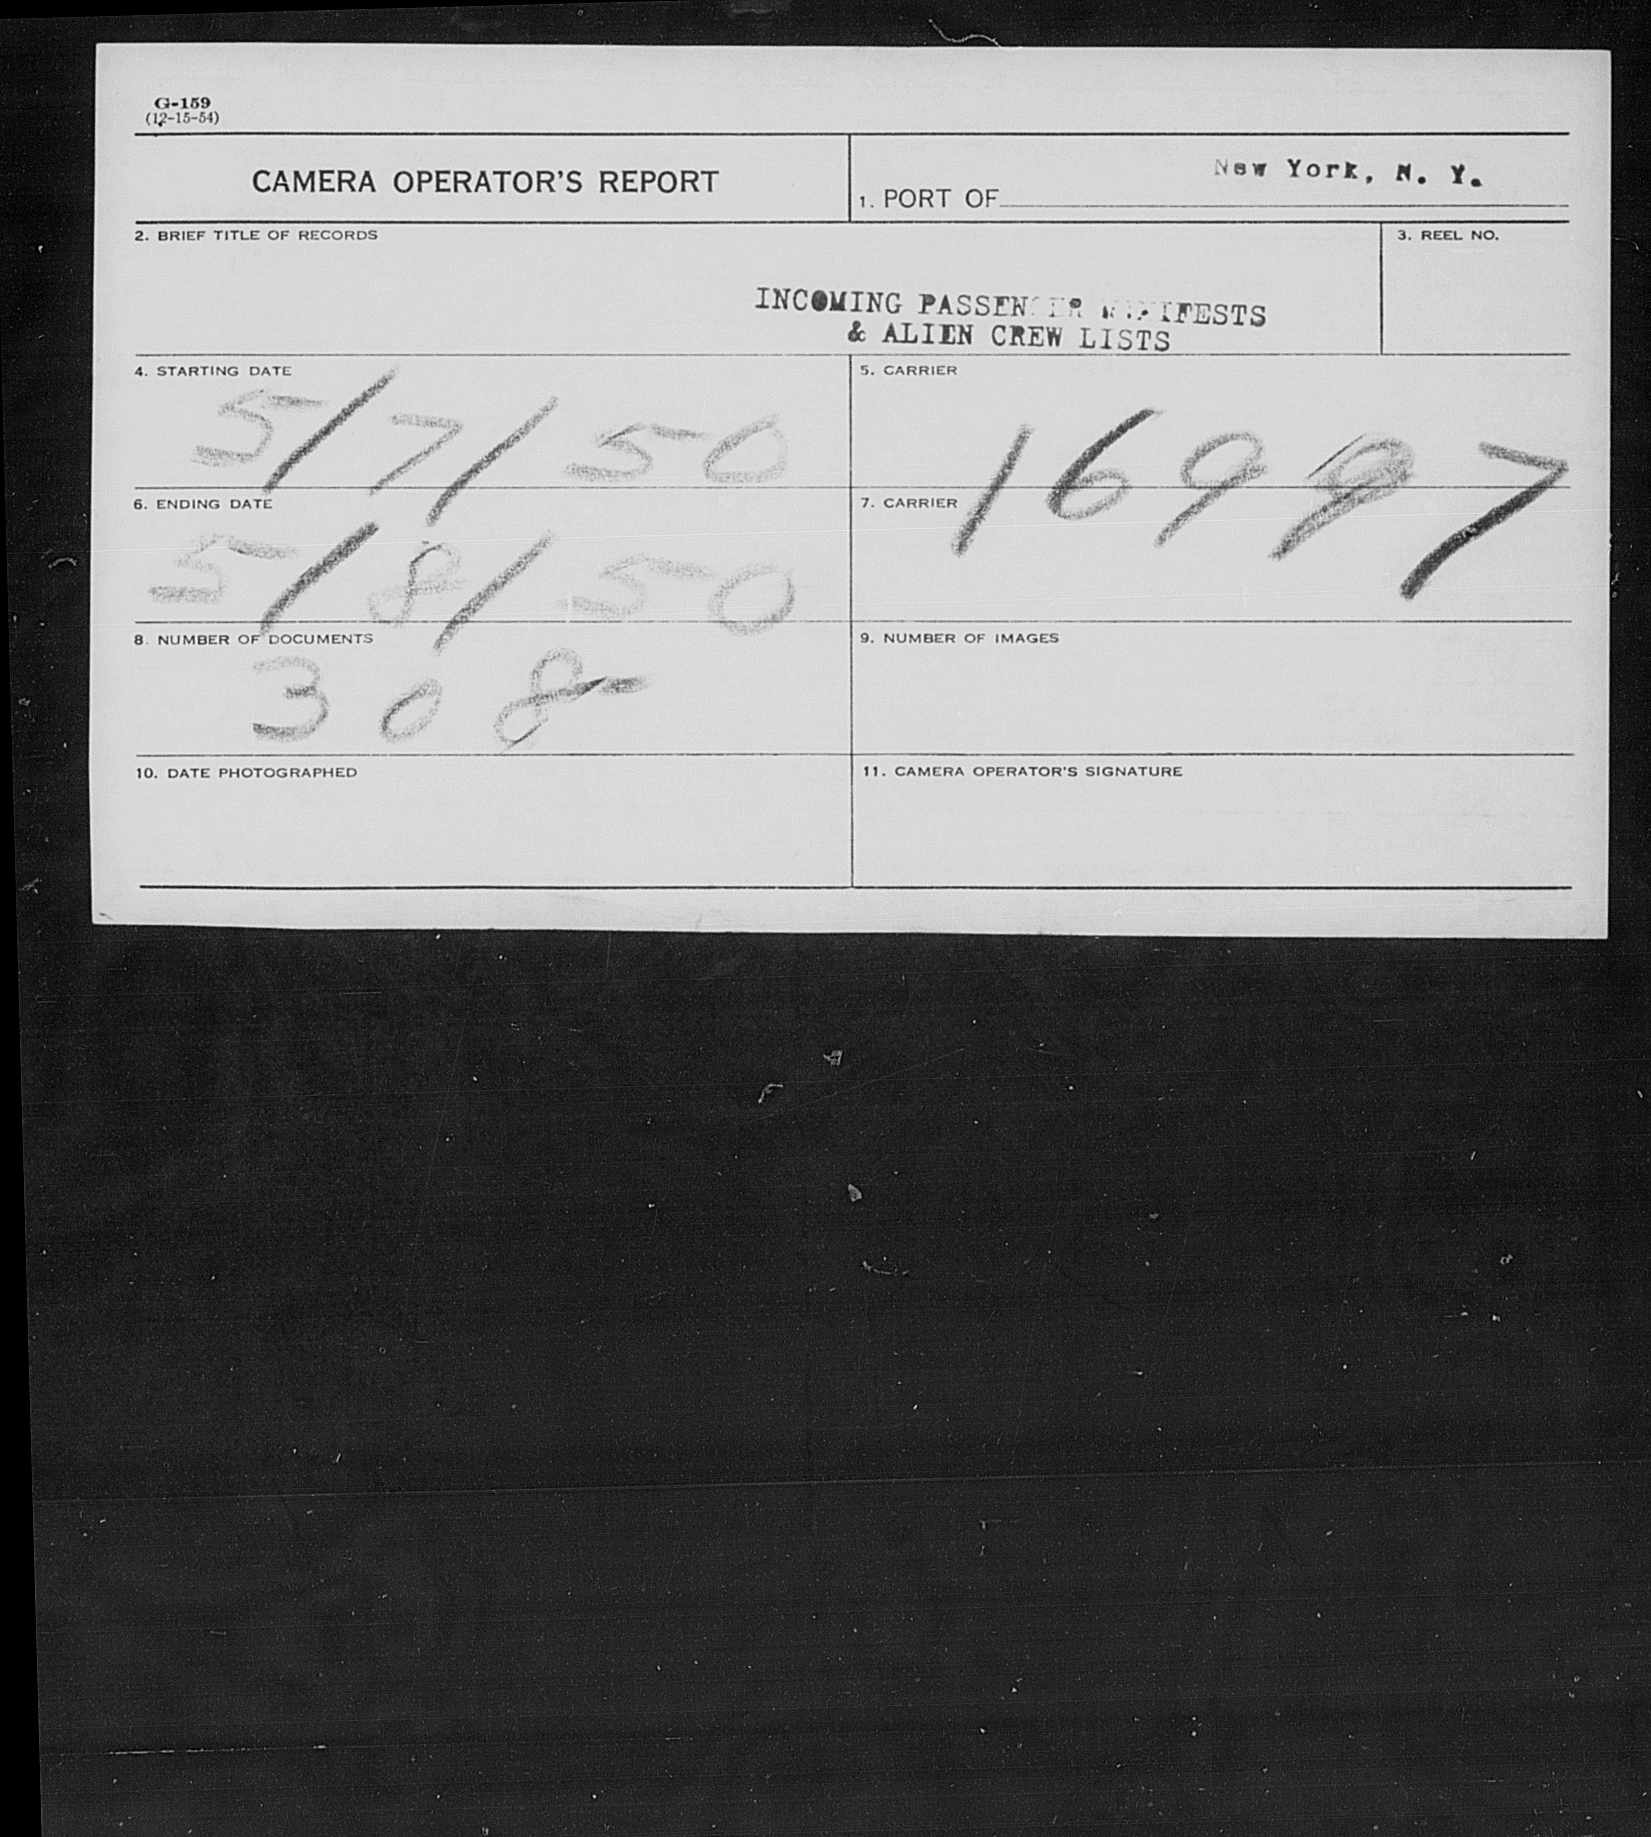 G-159
(12-15-54)
CAMERA OPERATOR'S REPORT
1. PORT OF New York, N. Y.
2. BRIEF TITLE OF RECORDS
3. REEL NO.
INCOMING PASSENGER MANIFESTS
& ALIEN CREW LISTS
4. STARTING DATE
5/7/50
5. CARRIER
6. ENDING DATE
5/8/50
7. CARRIER
8. NUMBER OF DOCUMENTS
308
9. NUMBER OF IMAGES
10. DATE PHOTOGRAPHED
11. CAMERA OPERATOR'S SIGNATURE